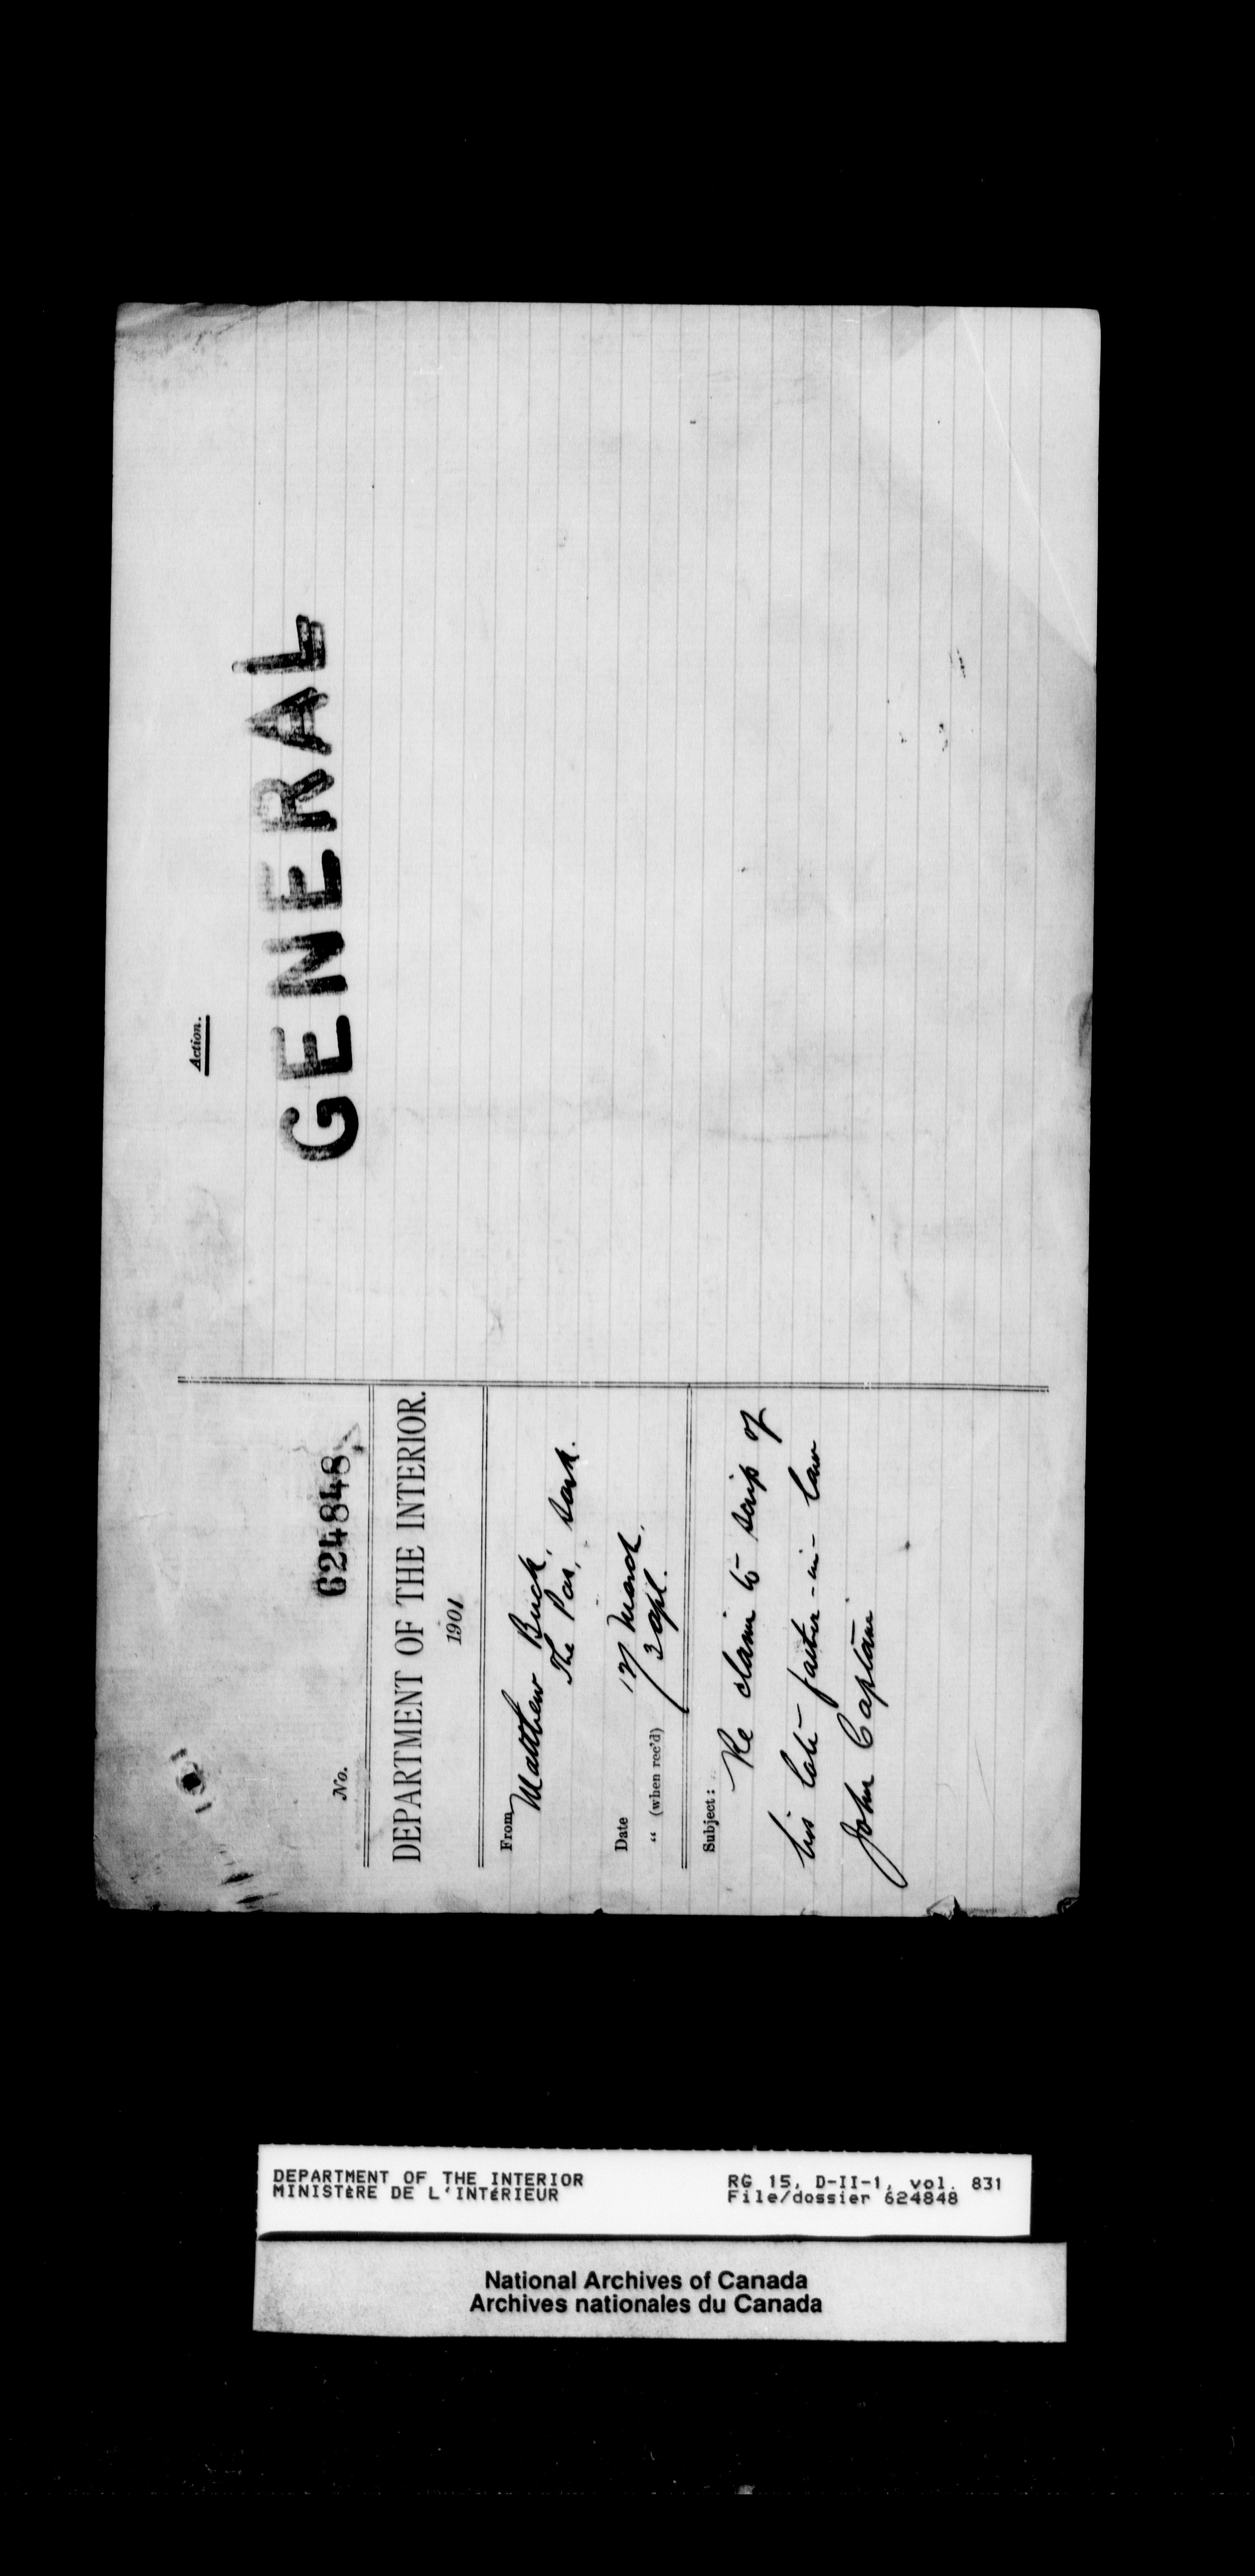 No. 624848
DEPARTMENT OF THE INTERIOR.
1901
From Matthew Buck,
The Pas, Sask.
Date 17 March.
" (when rec'd) 3 apl.
Subject:
Re claim to scrip of
his late father-in-law
John Captain
Action.
GENERAL
DEPARTMENT OF THE INTERIOR
MINISTÈRE DE L'INTÉRIEUR
RG 15, D-II-1, vol. 831
File/dossier 624848
National Archives of Canada
Archives nationales du Canada